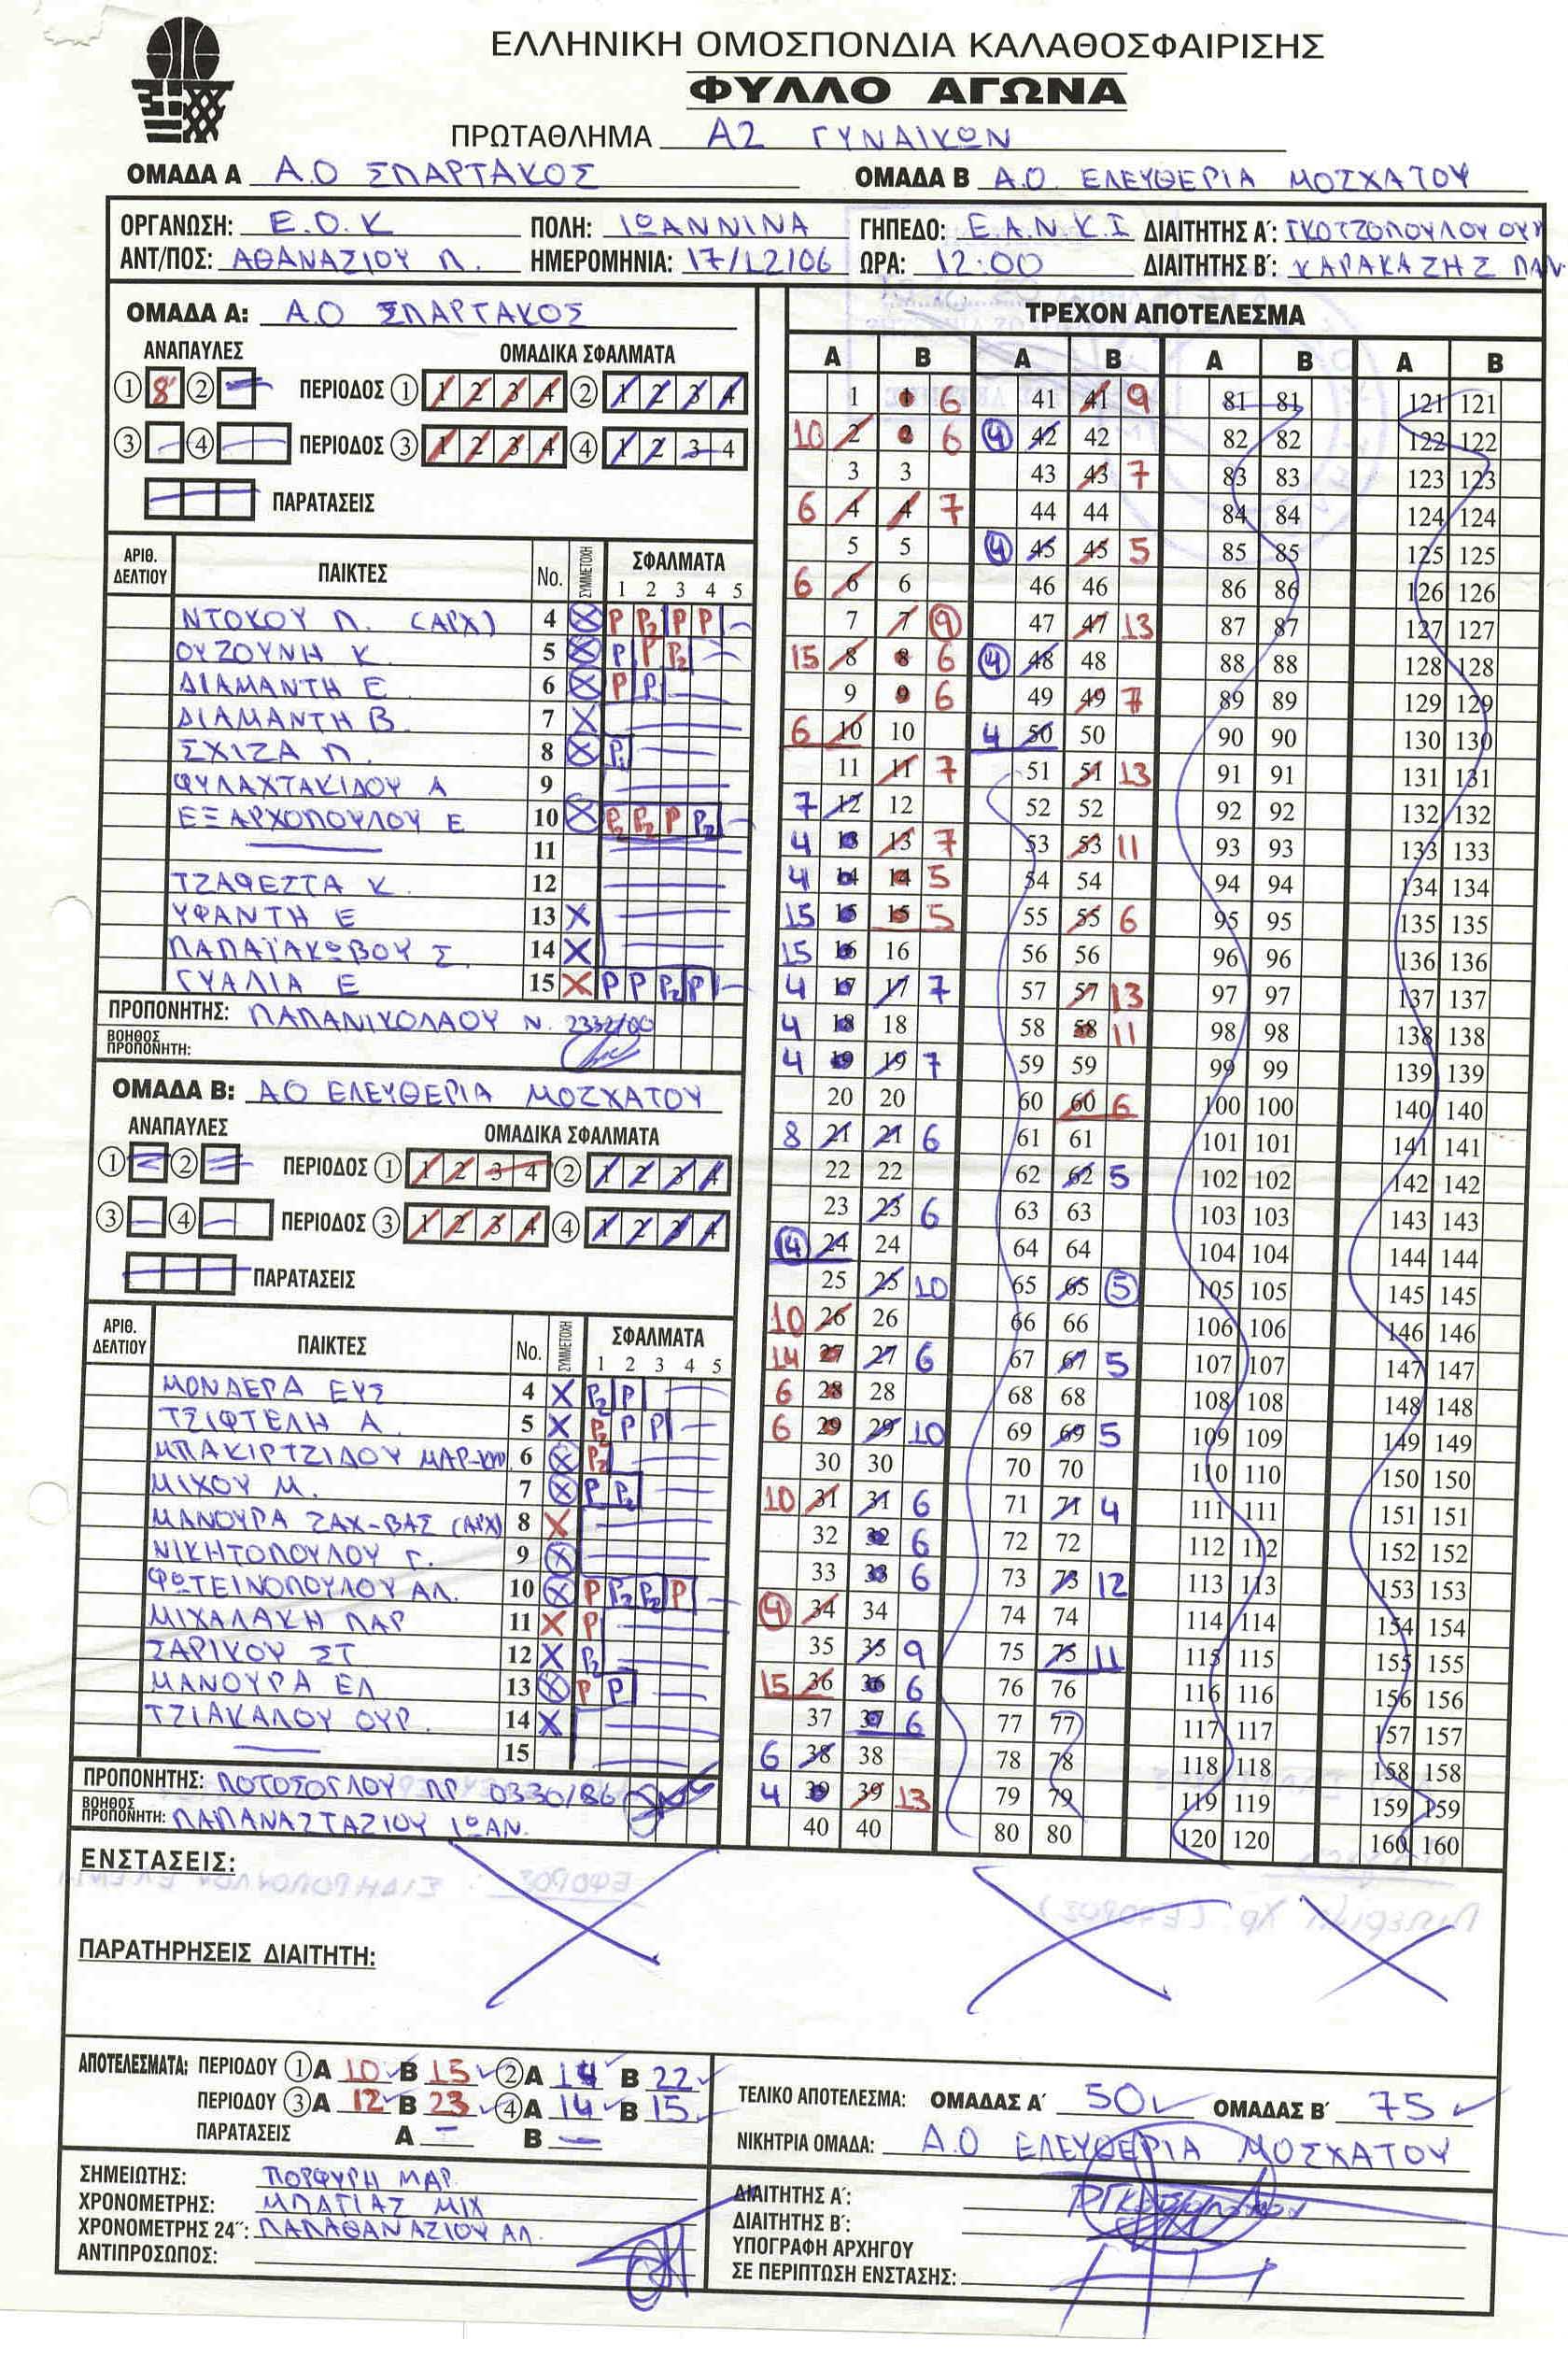 ΕΛΛΗΝΙΚΗ ΟΜΟΣΠΟΝΔΙΑ ΚΑΛΑΘΟΣΦΑΙΡΙΣΗΣ
ΦΥΛΛΟ ΑΓΩΝΑ
ΠΡΩΤΑΘΛΗΜΑ Α2 ΓΥΝΑΙΚΩΝ
ΟΜΑΔΑ Α Α.Ο ΣΠΑΡΤΑΚΟΣ ΟΜΑΔΑ Β Α.Ο. ΕΛΕΥΘΕΡΙΑ ΜΟΣΧΑΤΟΥ
ΟΡΓΑΝΩΣΗ: Ε.Ο.Κ ΠΟΛΗ: ΙΩΑΝΝΙΝΑ ΓΗΠΕΔΟ: Ε.Α.Ν.Κ.Ι ΔΙΑΙΤΗΤΗΣ Α΄: ΓΚΟΤΖΟΠΟΥΛΟΥ ΟΥΡ
ΑΝΤ/ΠΟΣ: ΑΘΑΝΑΣΙΟΥ Π. ΗΜΕΡΟΜΗΝΙΑ: 17/12/06 ΩΡΑ: 12:00 ΔΙΑΙΤΗΤΗΣ Β΄: ΚΑΡΑΚΑΖΗΣ ΠΑΝ.
ΟΜΑΔΑ Α: Α.Ο ΣΠΑΡΤΑΚΟΣ
ΑΝΑΠΑΥΛΕΣ ΟΜΑΔΙΚΑ ΣΦΑΛΜΑΤΑ
1 8' 2 ΠΕΡΙΟΔΟΣ 1 1 2 3 4 2 1 2 3 4
3 4 ΠΕΡΙΟΔΟΣ 3 1 2 3 4 4 1 2 3 4
ΠΑΡΑΤΑΣΕΙΣ
ΑΡΙΘ. ΔΕΛΤΙΟΥ ΠΑΙΚΤΕΣ No. ΣΥΜΜΕΤΟΧΗ ΣΦΑΛΜΑΤΑ
1 2 3 4 5
ΝΤΟΚΟΥ Π. (ΑΡΧ) 4 P P2 P P
ΟΥΖΟΥΝΗ Κ. 5 P P P2
ΔΙΑΜΑΝΤΗ Ε 6 P P
ΔΙΑΜΑΝΤΗ Β. 7
ΣΧΙΖΑ Π 8 P
ΦΥΛΑΧΤΑΚΙΔΟΥ Α 9
ΕΞΑΡΧΟΠΟΥΛΟΥ Ε 10 P2 P2 P P2
11
ΤΖΑΦΕΣΤΑ Κ. 12
ΥΦΑΝΤΗ Ε 13
ΠΑΠΑΪΑΚΩΒΟΥ Σ. 14
ΓΥΑΛΙΑ Ε 15 P P P2 P
ΠΡΟΠΟΝΗΤΗΣ: ΠΑΠΑΝΙΚΟΛΑΟΥ Ν. 2332/00
ΒΟΗΘΟΣ ΠΡΟΠΟΝΗΤΗ:
ΟΜΑΔΑ Β: ΑΟ ΕΛΕΥΘΕΡΙΑ ΜΟΣΧΑΤΟΥ
ΑΝΑΠΑΥΛΕΣ ΟΜΑΔΙΚΑ ΣΦΑΛΜΑΤΑ
1 2 ΠΕΡΙΟΔΟΣ 1 1 2 3 4 2 1 2 3 4
3 4 ΠΕΡΙΟΔΟΣ 3 1 2 3 4 4 1 2 3 4
ΠΑΡΑΤΑΣΕΙΣ
ΑΡΙΘ. ΔΕΛΤΙΟΥ ΠΑΙΚΤΕΣ No. ΣΥΜΜΕΤΟΧΗ ΣΦΑΛΜΑΤΑ
1 2 3 4 5
ΜΟΝΔΕΡΑ ΕΥΣ 4 P2 P
ΤΣΙΦΤΕΛΗ Α. 5 P2 P P
ΜΠΑΚΙΡΤΖΙΔΟΥ 6 P2
ΜΙΧΟΥ Μ. 7 P P2
ΜΑΝΟΥΡΑ ΖΑΧ-ΒΑΣ (ΑΡΧ) 8
ΝΙΚΗΤΟΠΟΥΛΟΥ Γ. 9
ΦΩΤΕΙΝΟΠΟΥΛΟΥ ΑΛ. 10 P P2 P2 P
ΜΙΧΑΛΑΚΗ ΠΑΡ 11 P
ΣΑΡΙΚΟΥ ΣΤ 12 P2
ΜΑΝΟΥΡΑ ΕΛ 13 P P
ΤΖΙΑΚΑΛΟΥ ΟΥΡ. 14
15
ΠΡΟΠΟΝΗΤΗΣ: ΠΟΤΟΣΟΓΛΟΥ ΠΡ 0330/86
ΒΟΗΘΟΣ ΠΡΟΠΟΝΗΤΗ: ΠΑΠΑΝΑΣΤΑΣΙΟΥ ΙΩΑΝ.
ΤΡΕΧΟΝ ΑΠΟΤΕΛΕΣΜΑ
Α Β Α Β Α Β Α Β
1 1 6 41 41 9 81 81 121 121
10 2 2 6 4 42 42 82 82 122 122
3 3 43 43 7 83 83 123 123
6 4 4 7 44 44 84 84 124 124
5 5 4 45 45 5 85 85 125 125
6 6 6 46 46 86 86 126 126
7 7 9 47 47 13 87 87 127 127
15 8 8 6 4 48 48 88 88 128 128
9 9 6 49 49 7 89 89 129 129
6 10 10 4 50 50 90 90 130 130
11 11 7 51 51 13 91 91 131 131
7 12 12 52 52 92 92 132 132
4 13 13 7 53 53 11 93 93 133 133
4 14 14 5 54 54 94 94 134 134
15 15 15 5 55 55 6 95 95 135 135
15 16 16 56 56 96 96 136 136
4 17 17 7 57 57 13 97 97 137 137
4 18 18 58 58 11 98 98 138 138
4 19 19 7 59 59 99 99 139 139
20 20 60 60 6 100 100 140 140
8 21 21 6 61 61 101 101 141 141
22 22 62 62 5 102 102 142 142
23 23 6 63 63 103 103 143 143
4 24 24 64 64 104 104 144 144
25 25 10 65 65 5 105 105 145 145
10 26 26 66 66 106 106 146 146
14 27 27 6 67 67 5 107 107 147 147
6 28 28 68 68 108 108 148 148
6 29 29 10 69 69 5 109 109 149 149
30 30 70 70 110 110 150 150
10 31 31 6 71 71 4 111 111 151 151
32 32 6 72 72 112 112 152 152
33 33 6 73 73 12 113 113 153 153
4 34 34 74 74 114 114 154 154
35 35 9 75 75 11 115 115 155 155
15 36 36 6 76 76 116 116 156 156
37 37 6 77 77 117 117 157 157
6 38 38 78 78 118 118 158 158
4 39 39 13 79 79 119 119 159 159
40 40 80 80 120 120 160 160
ΕΝΣΤΑΣΕΙΣ:
ΠΑΡΑΤΗΡΗΣΕΙΣ ΔΙΑΙΤΗΤΗ:
ΑΠΟΤΕΛΕΣΜΑΤΑ: ΠΕΡΙΟΔΟΥ 1 Α 10 Β 15 2 Α 14 Β 22
ΠΕΡΙΟΔΟΥ 3 Α 12 Β 23 4 Α 14 Β 15
ΠΑΡΑΤΑΣΕΙΣ Α – Β –
ΤΕΛΙΚΟ ΑΠΟΤΕΛΕΣΜΑ: ΟΜΑΔΑΣ Α΄ 50 ΟΜΑΔΑΣ Β΄ 75
ΝΙΚΗΤΡΙΑ ΟΜΑΔΑ: Α.Ο ΕΛΕΥΘΕΡΙΑ ΜΟΣΧΑΤΟΥ
ΣΗΜΕΙΩΤΗΣ: ΠΟΡΦΥΡΗ ΜΑΡ.
ΧΡΟΝΟΜΕΤΡΗΣ: ΜΠΑΓΙΑΣ ΜΙΧ
ΧΡΟΝΟΜΕΤΡΗΣ 24΄΄: ΠΑΠΑΘΑΝΑΣΙΟΥ ΑΛ.
ΑΝΤΙΠΡΟΣΩΠΟΣ:
ΔΙΑΙΤΗΤΗΣ Α΄:
ΔΙΑΙΤΗΤΗΣ Β΄:
ΥΠΟΓΡΑΦΗ ΑΡΧΗΓΟΥ
ΣΕ ΠΕΡΙΠΤΩΣΗ ΕΝΣΤΑΣΗΣ: